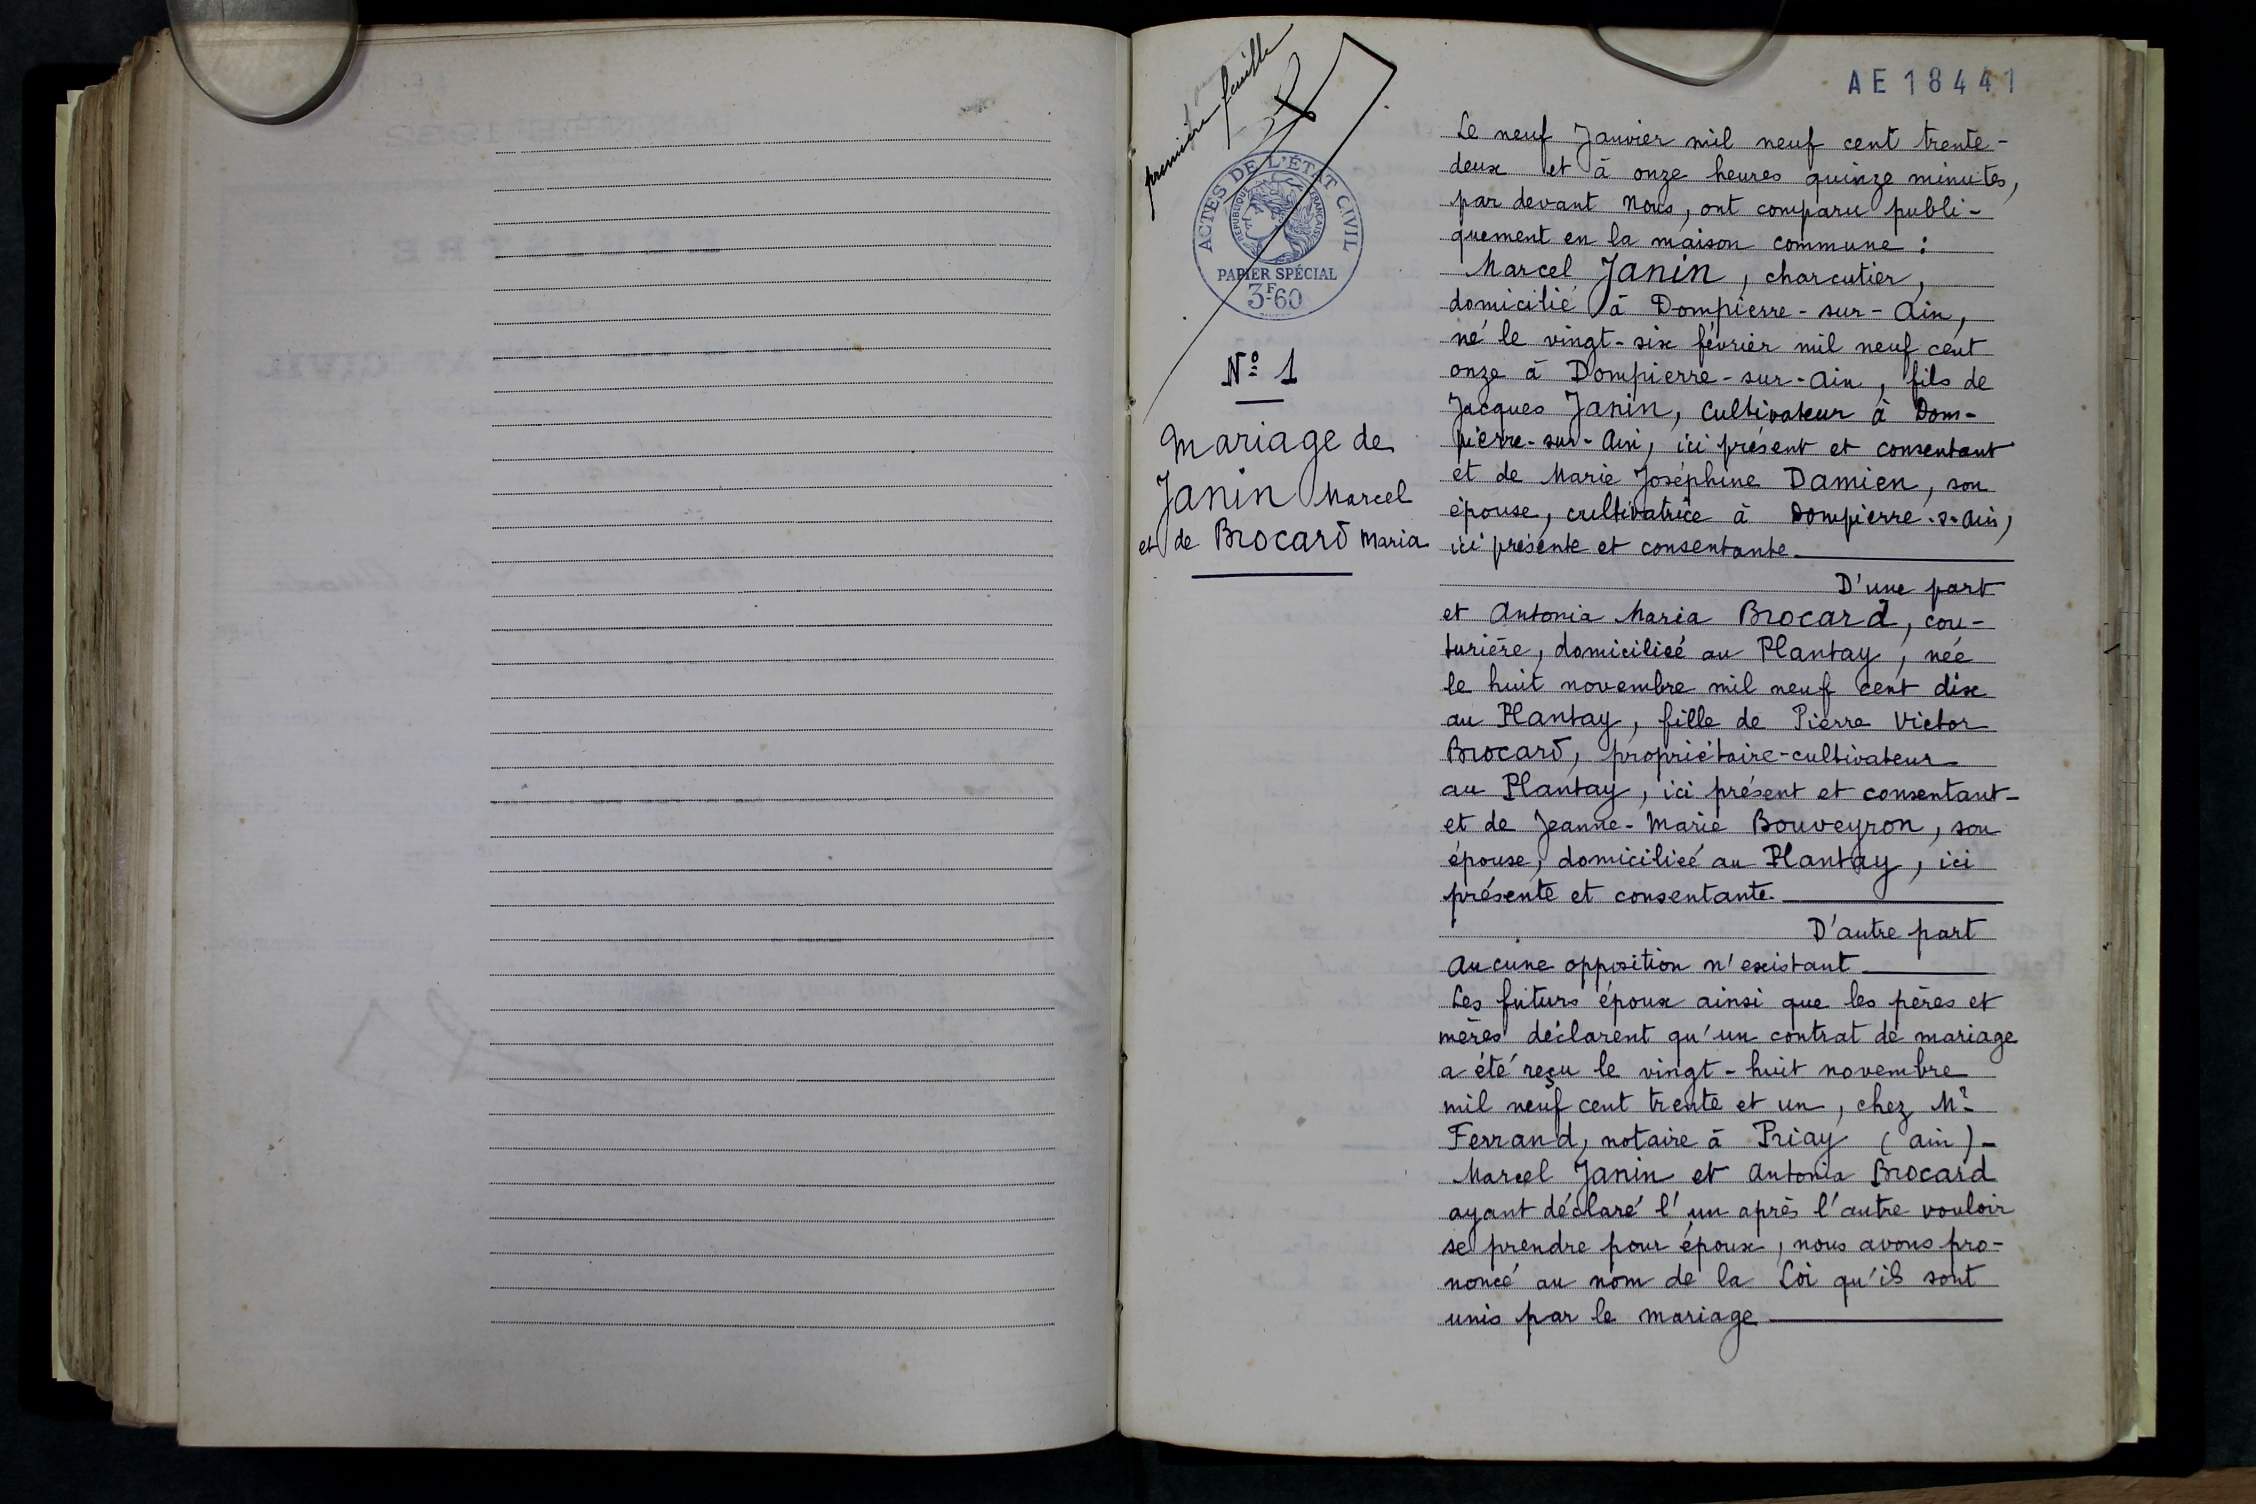 première feuille
AE 18441
ACTES DE L'ÉTAT CIVIL
RÉPUBLIQUE FRANÇAISE
PAPIER SPÉCIAL
3F60
Nº 1
Mariage de
Janin Marcel
et de Brocard Maria
Le neuf Janvier mil neuf cent trente-
deux et à onze heures quinze minutes,
par devant Nous, ont comparu publi-
quement en la maison commune :
Marcel Janin, charcutier,
domicilié à Dompierre-sur-Ain,
né le vingt-six février mil neuf cent
onze à Dompierre-sur-Ain, fils de
Jacques Janin, Cultivateur à Dom-
pierre-sur-Ain, ici présent et consentant
et de Marie Joséphine Damien, son
épouse, cultivatrice à Dompierre-s-Ain,
ici présente et consentante.
D'une part
et Antonia Maria Brocard, cou-
turière, domiciliée au Plantay, née
le huit novembre mil neuf cent dix
au Plantay, fille de Pierre Victor
Brocard, propriétaire-cultivateur
au Plantay, ici présent et consentant-
et de Jeanne-Marie Bouveyron, son
épouse, domiciliée au Plantay, ici
présente et consentante.
D'autre part
Aucune opposition n'existant
Les futurs époux ainsi que les pères et
mères déclarent qu'un contrat de mariage
a été reçu le vingt-huit novembre
mil neuf cent trente et un, chez Me
Ferrand, notaire à Priay (Ain)-
Marcel Janin et Antonia Brocard
ayant déclaré l'un après l'autre vouloir
se prendre pour époux, nous avons pro-
noncé au nom de la Loi qu'ils sont
unis par le mariage